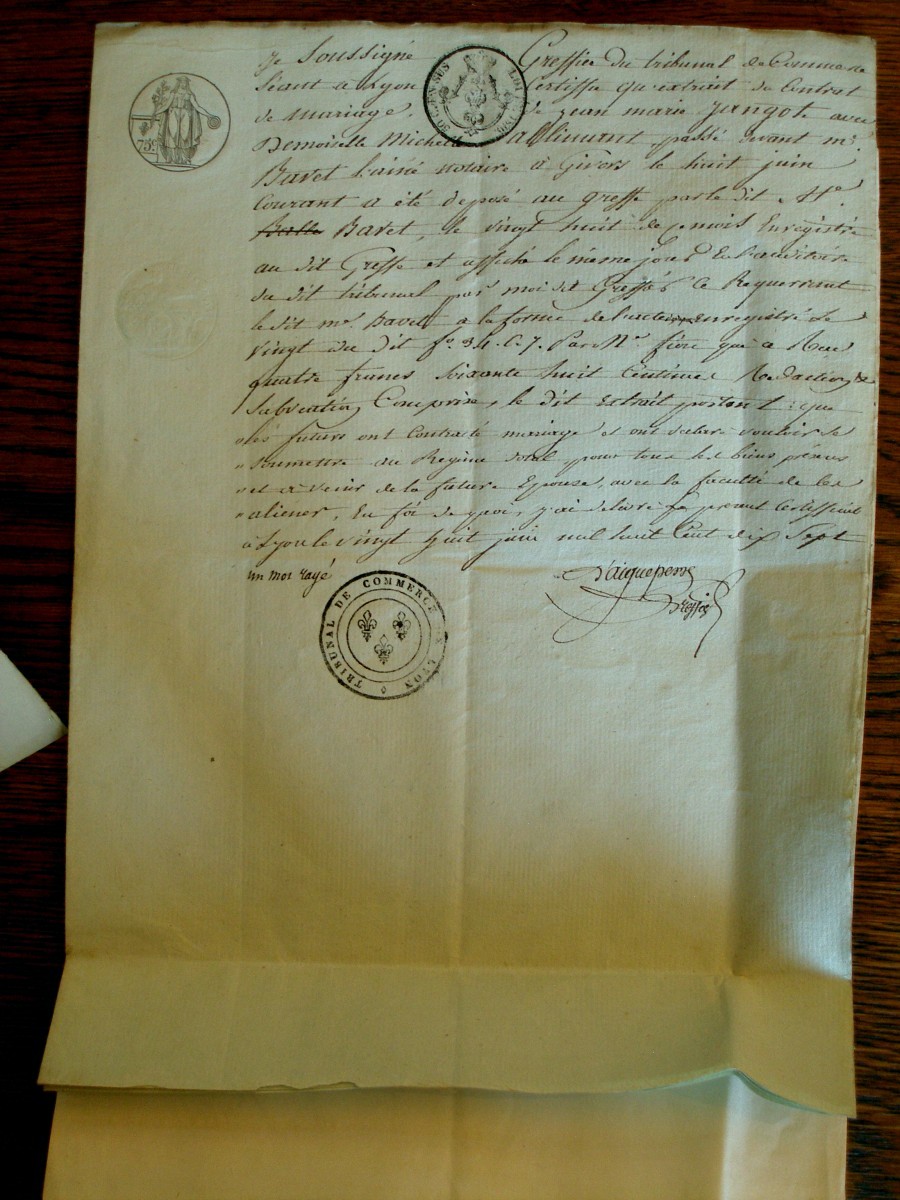 75c
50 C. EN SUS LOI 1816
Je Soussigné Greffier du tribunal de Commerce
Séant a Lyon Certiffie qu'extrait du Contrat
de mariage de Jean marie Jangot avec
Demoiselle Michelle passé devant me.
Bavet l'ainé notaire à Givors le huit juin
Courant a été déposé au greffe par le dit Me.
Bavet, le vingt huit de ce mois Enregistré
au dit Greffe et affiché le même jour En l'auditoire
du dit tribunal par moi dit Greffier Ce Requerrant
le dit me. Bavet a la forme de l'acte Enregistré Le
vingt du dit fo. 34. C. 7. Par Mr. qui a Reçu
quatre francs Soixante huit Centimes Rédaction &
Subvention Comprise, le dit Extrait portant : que
" les futurs ont Contracté mariage et ont déclaré vouloir se
" Soumettre au Régime dotal pour tous les biens présens
" et à venir de la future Epouse, avec la faculté de les
" aliener, En foi de quoi j'ai délivré le présent Certifficat
à Lyon le vingt huit juin mil huit Cent dix Sept
un mot rayé D'aigueperse
Greffier
TRIBUNAL DE COMMERCE LYON